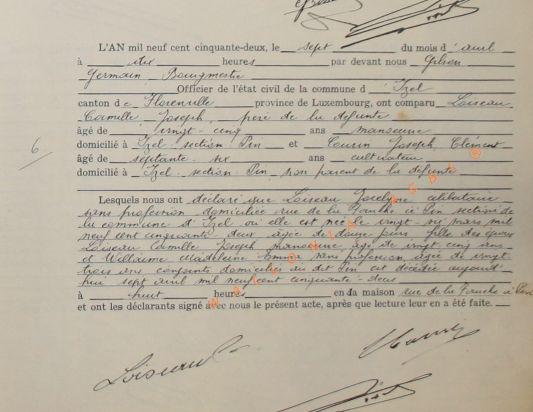 L'AN mil neuf cent cinquante-deux, le sept du mois d'avril
à dix heures par devant nous Gilson
Germain Bourgmestre
Officier de l'état civil de la commune d'Izel
canton de Florenville province de Luxembourg, ont comparu Loiseau
Camille Joseph, père de la défunte
âgé de vingt-cinq ans manoeuvre
domicilié à Izel section Pin et Joseph Clément
âgé de septante-six ans cultivateur
domicilié à Izel section Pin, non parent de la défunte
6
Lesquels nous ont déclaré que Loiseau Jocelyne célibataire
sans profession domiciliée rue de la à Pin section de
la commune d'Izel où elle est née le vingt- mars mil
neuf cent cinquante-deux âgée de douze jours fille des époux
Loiseau Camille Joseph manoeuvre, âgé de vingt-cinq ans
et Willaime Madeleine sans profession âgée de vingt-
trois ans conjoints domiciliés au dit Pin est décédée aujourd'
hui sept avril mil neuf cent cinquante-deux
à huit heures en la maison rue de la à Pin
et ont les déclarants signé avec nous le présent acte, après que lecture leur en a été faite.
Loiseau C